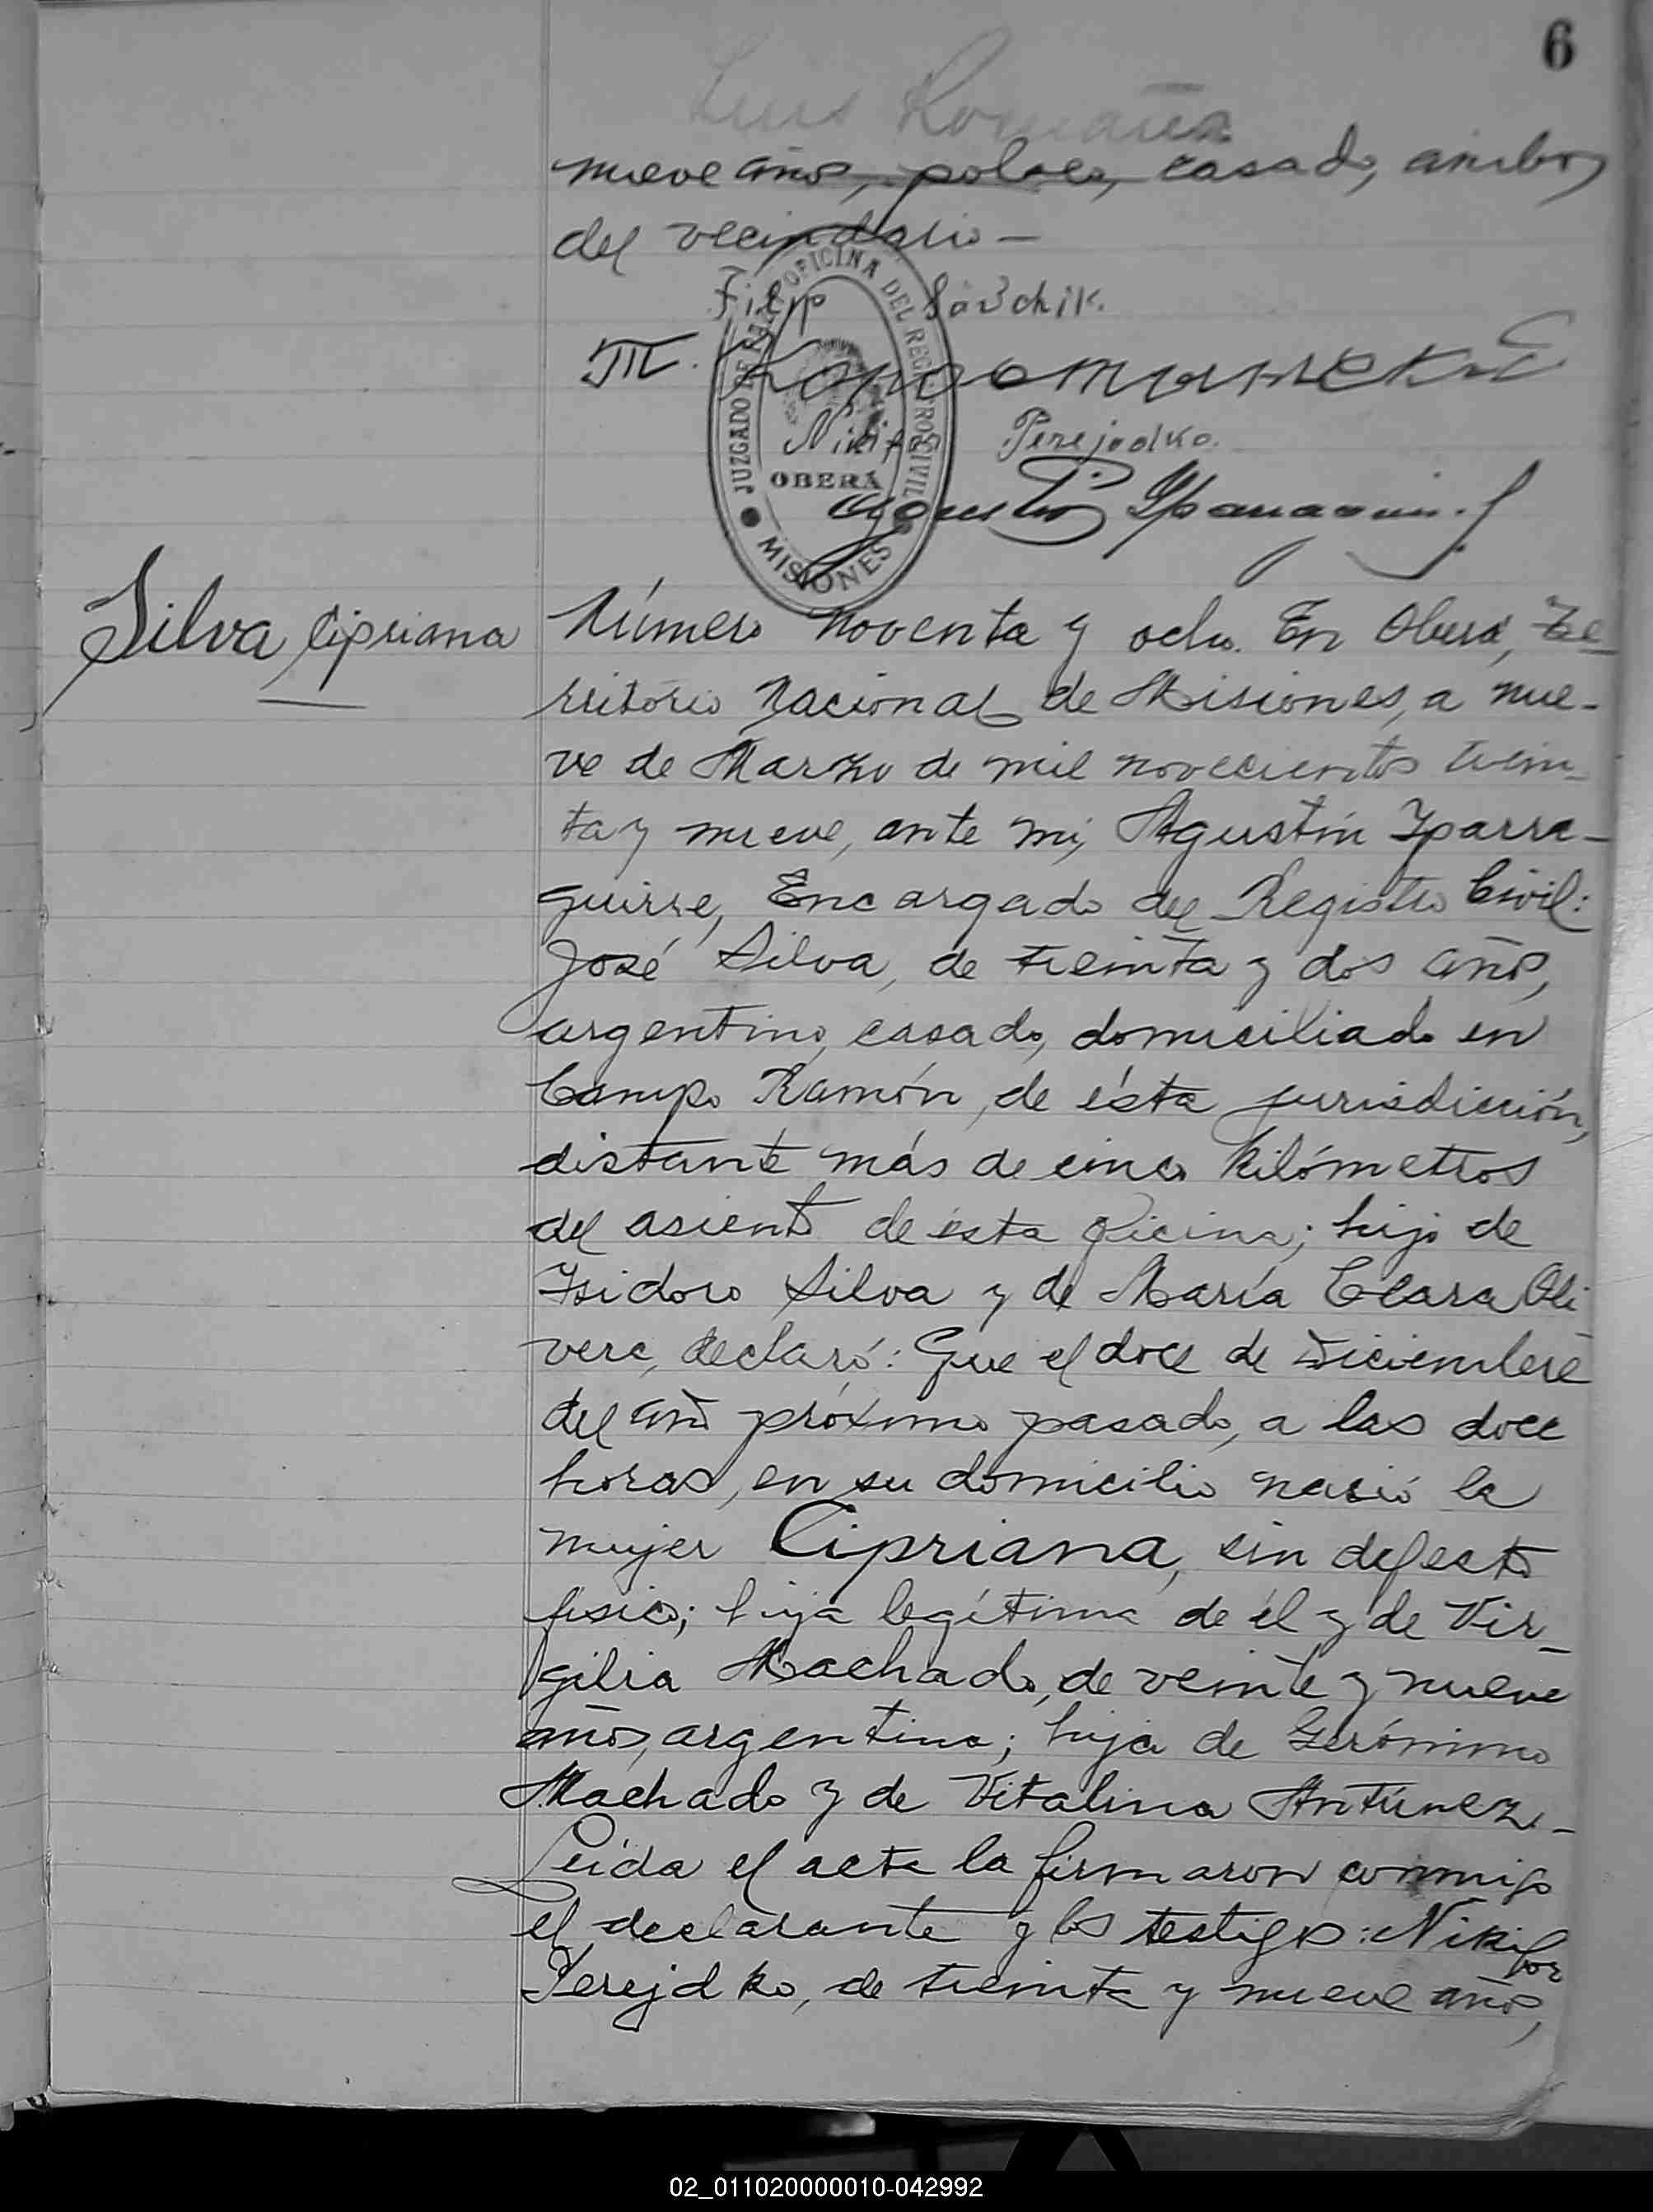 6
Luis Romaña
nueve años, polaco, casado, ambos
del vecindario –
Filip Savchik.
JUZGADO DE PAZ OFICINA DEL REGISTRO CIVIL
OBERÁ
MISIONES
Nikifor Perejodko.
Silva Cipriana
Número noventa y ocho. En Oberá, Te-
rritorio Nacional de Misiones, a nue-
ve de Marzo de mil novecientos trein-
ta y nueve, ante mí, Agustín Yparra-
guirre, Encargado del Registro Civil:
José Silva, de treinta y dos años,
argentino, casado, domiciliado en
Campo Ramón, de ésta jurisdicción,
distante más de cinco kilómetros
del asiento de ésta oficina; hijo de
Isidoro Silva y de María Clara Oli
vera, declaró: Que el doce de Diciembre
del año próximo pasado, a las doce
horas, en su domicilio nació la
mujer Cipriana, sin defecto
físico; hija legítima de él y de Vir-
gilia Machado, de veinte y nueve
años, argentina; hija de Gerónimo
Machado y de Vitalina Antúnez.-
Leída el acta la firmaron conmigo
el declarante y los testigos: Nikifor
Perejdko, de treinta y nueve años,
02_011020000010-042992